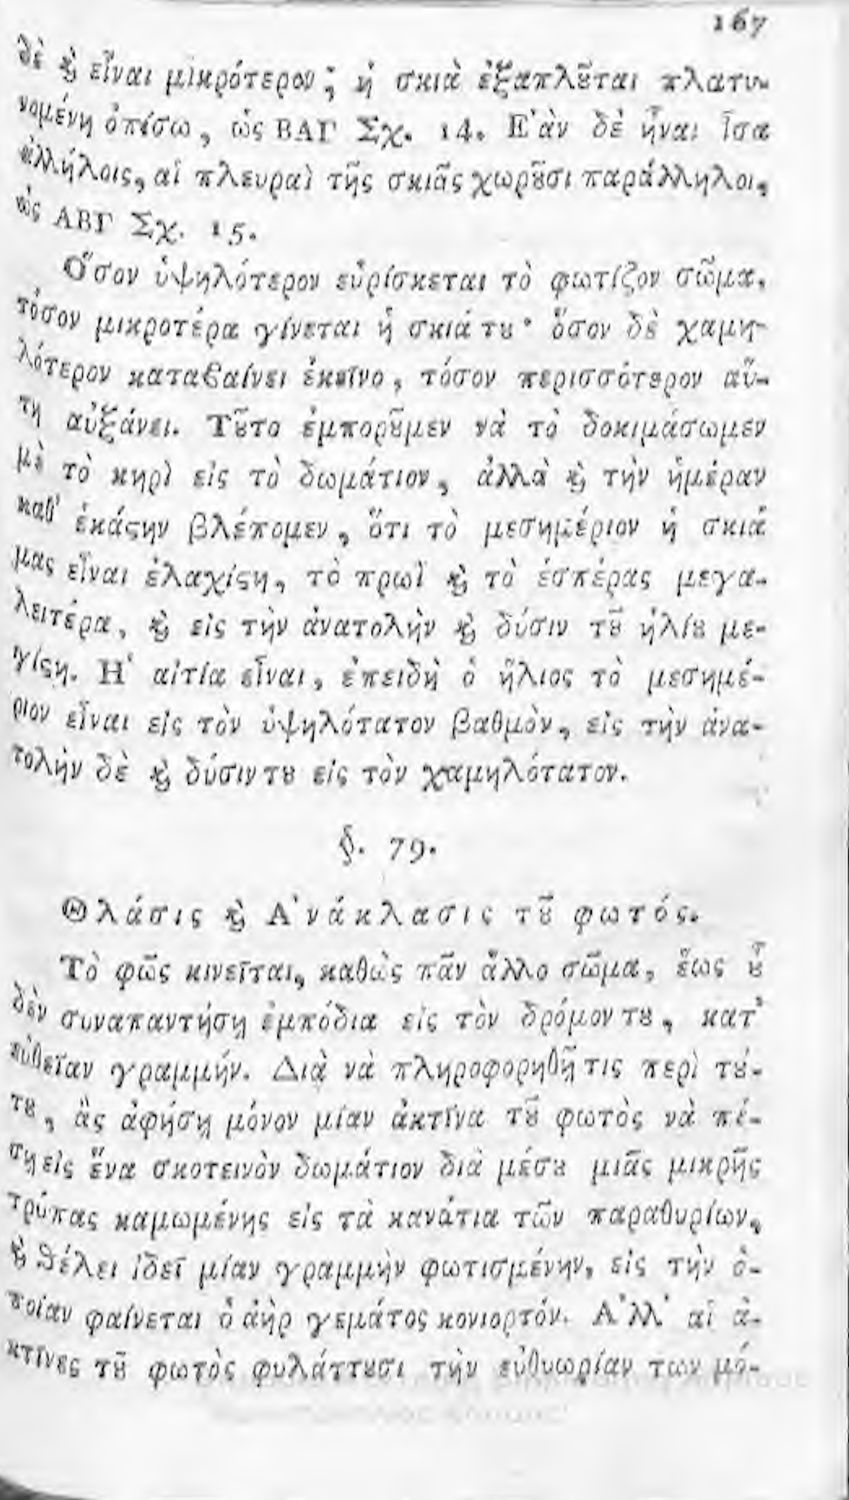 167
δὲ ϗ̀ εἶναι μικρότερον; ἡ σκιὰ ἐξαπλȣ͂ται πλατυ-
νομένη ὀπίσω, ὡς ΒΑΓ Σχ. 14. Ε᾿ὰν δὲ ἦναι ἶσα
ἀλλήλοις, αἱ πλευραὶ τῆς σκιᾶς χωρȣ͂σι παράλληλοι,
ὡς ΑΒΓ Σχ. 15.
Ο῞σον ὑψηλότερον εὑρίσκεται τὸ φωτίζον σῶμα,
τόσον μικροτέρα γίνεται ἡ σκιά τȣ· ὅσον δὲ χαμη-
λότερον καταϐαίνει ἐκεῖνο, τόσον περισσότερον αὕ-
τη αὐξάνει. Τȣ͂το ἐμπορȣ͂μεν νὰ τὸ δοκιμάσωμεν
μὲ τὸ κηρὶ εἰς τὸ δωμάτιον, ἀλλὰ ϗ̀ τὴν ἡμέραν
καθ᾿ ἑκάϛην βλέπομεν, ὅτι τὸ μεσημέριον ἡ σκιά
μας εἶναι ἐλαχίϛη, τὸ πρωὶ ϗ̀ τὸ ἑσπέρας μεγα-
λειτέρα, ϗ̀ εἰς τὴν ἀνατολὴν ϗ̀ δύσιν τȣ͂ ἡλίȣ με-
γίϛη. Η῾ αἰτία εἶναι, ἐπειδὴ ὁ ἥλιος τὸ μεσημέ-
ριον εἶναι εἰς τὸν ὑψηλότατον βαθμὸν, εἰς τὴν ἀνα-
τολὴν δὲ ϗ̀ δύσιν τȣ εἰς τὸν χαμηλότατον.
§. 79.
Θλάσις ϗ̀ Α᾿νάκλασις τȣ͂ φωτός.
Τὸ φῶς κινεῖται, καθὼς πᾶν ἄλλο σῶμα, ἕως ȣ̃
δὲν συναπαντήσῃ ἐμπόδια εἰς τὸν δρόμον τȣ, κατ᾿
εὐθεῖαν γραμμήν. Διὰ νὰ πληροφορηθῇ τις περὶ τȣ́-
τȣ, ἂς ἀφήσῃ μόνον μίαν ἀκτῖνα τȣ͂ φωτὸς νὰ πέ-
σῃ εἰς ἕνα σκοτεινὸν δωμάτιον διὰ μέσȣ μιᾶς μικρῆς
τρύπας καμωμένης εἰς τὰ κανάτια τῶν παραθυρίων,
ϗ̀ θέλει ἰδεῖ μίαν γραμμὴν φωτισμένην, εἰς τὴν ὁ-
ποίαν φαίνεται ὁ ἀὴρ γεμάτος κονιορτόν. Α᾿λλ᾿ αἱ ἀ-
κτίνες τȣ͂ φωτὸς φυλάττȣσι τὴν εὐθυωρίαν των μό-